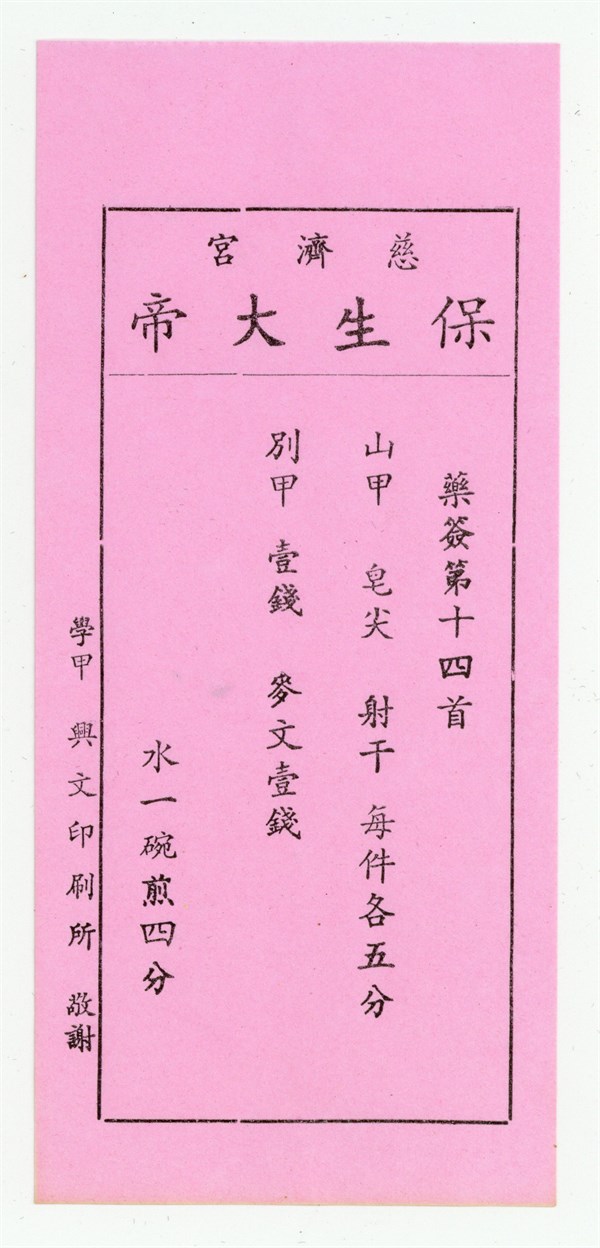 慈濟宮
保生大帝
藥簽第十四首
山甲 皂尖 射干 每件各五分
別甲 壹錢 麥文壹錢
水一碗煎四分
學甲 興文印刷所 敬謝